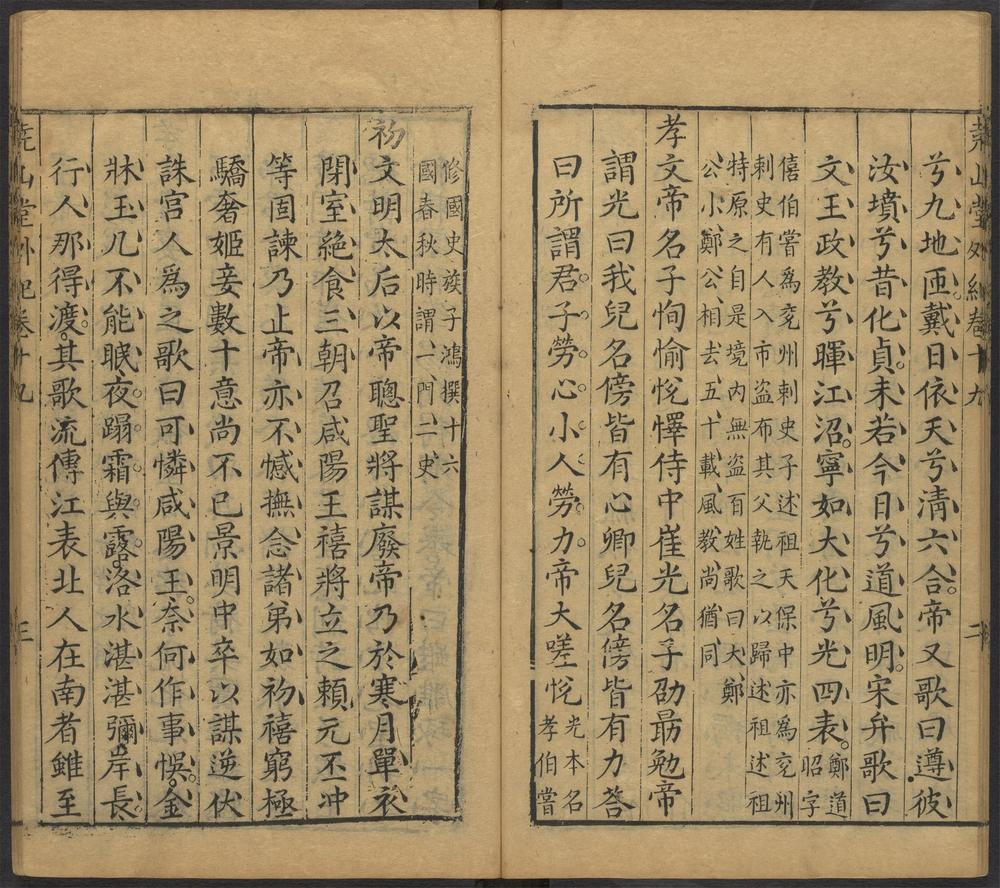 兮九地匝戴日依天兮清六合帝又歌曰遵彼
汝墳兮昔化貞未若今日兮道風明宋弁歌曰
文王政教兮暉江沼寧如大化兮光四表鄭道
昭字
僖伯嘗爲兗州刺史子述祖天保中亦爲兗州
刺史有人入市盗布其父執之以歸述祖述祖
特原之自是境内無盗百姓歌曰大鄭
公小鄭公相去五十載風教尚猶同
孝文帝名子恂愉悅懌侍中崔光名子劭勗勉帝
謂光曰我兒名傍皆有心卿兒名傍皆有力答
曰所謂君子勞心小人勞力帝大嗟悅光本名
孝伯嘗
修國史族子鴻撰十六
國春秋時謂一門二史
初文明太后以帝聰聖將謀廢帝乃於寒月單衣
閉室絶食三朝召咸陽王禧將立之頼元丕冲
等固諫乃止帝亦不憾撫念諸弟如初禧窮極
驕奢姬妾數十意尚不已景明中卒以謀逆伏
誅宮人爲之歌曰可憐咸陽王奈何作事悞金
牀玉几不能眠夜蹋霜與露洛水湛湛彌岸長
行人那得渡其歌流傳江表北人在南者雖至